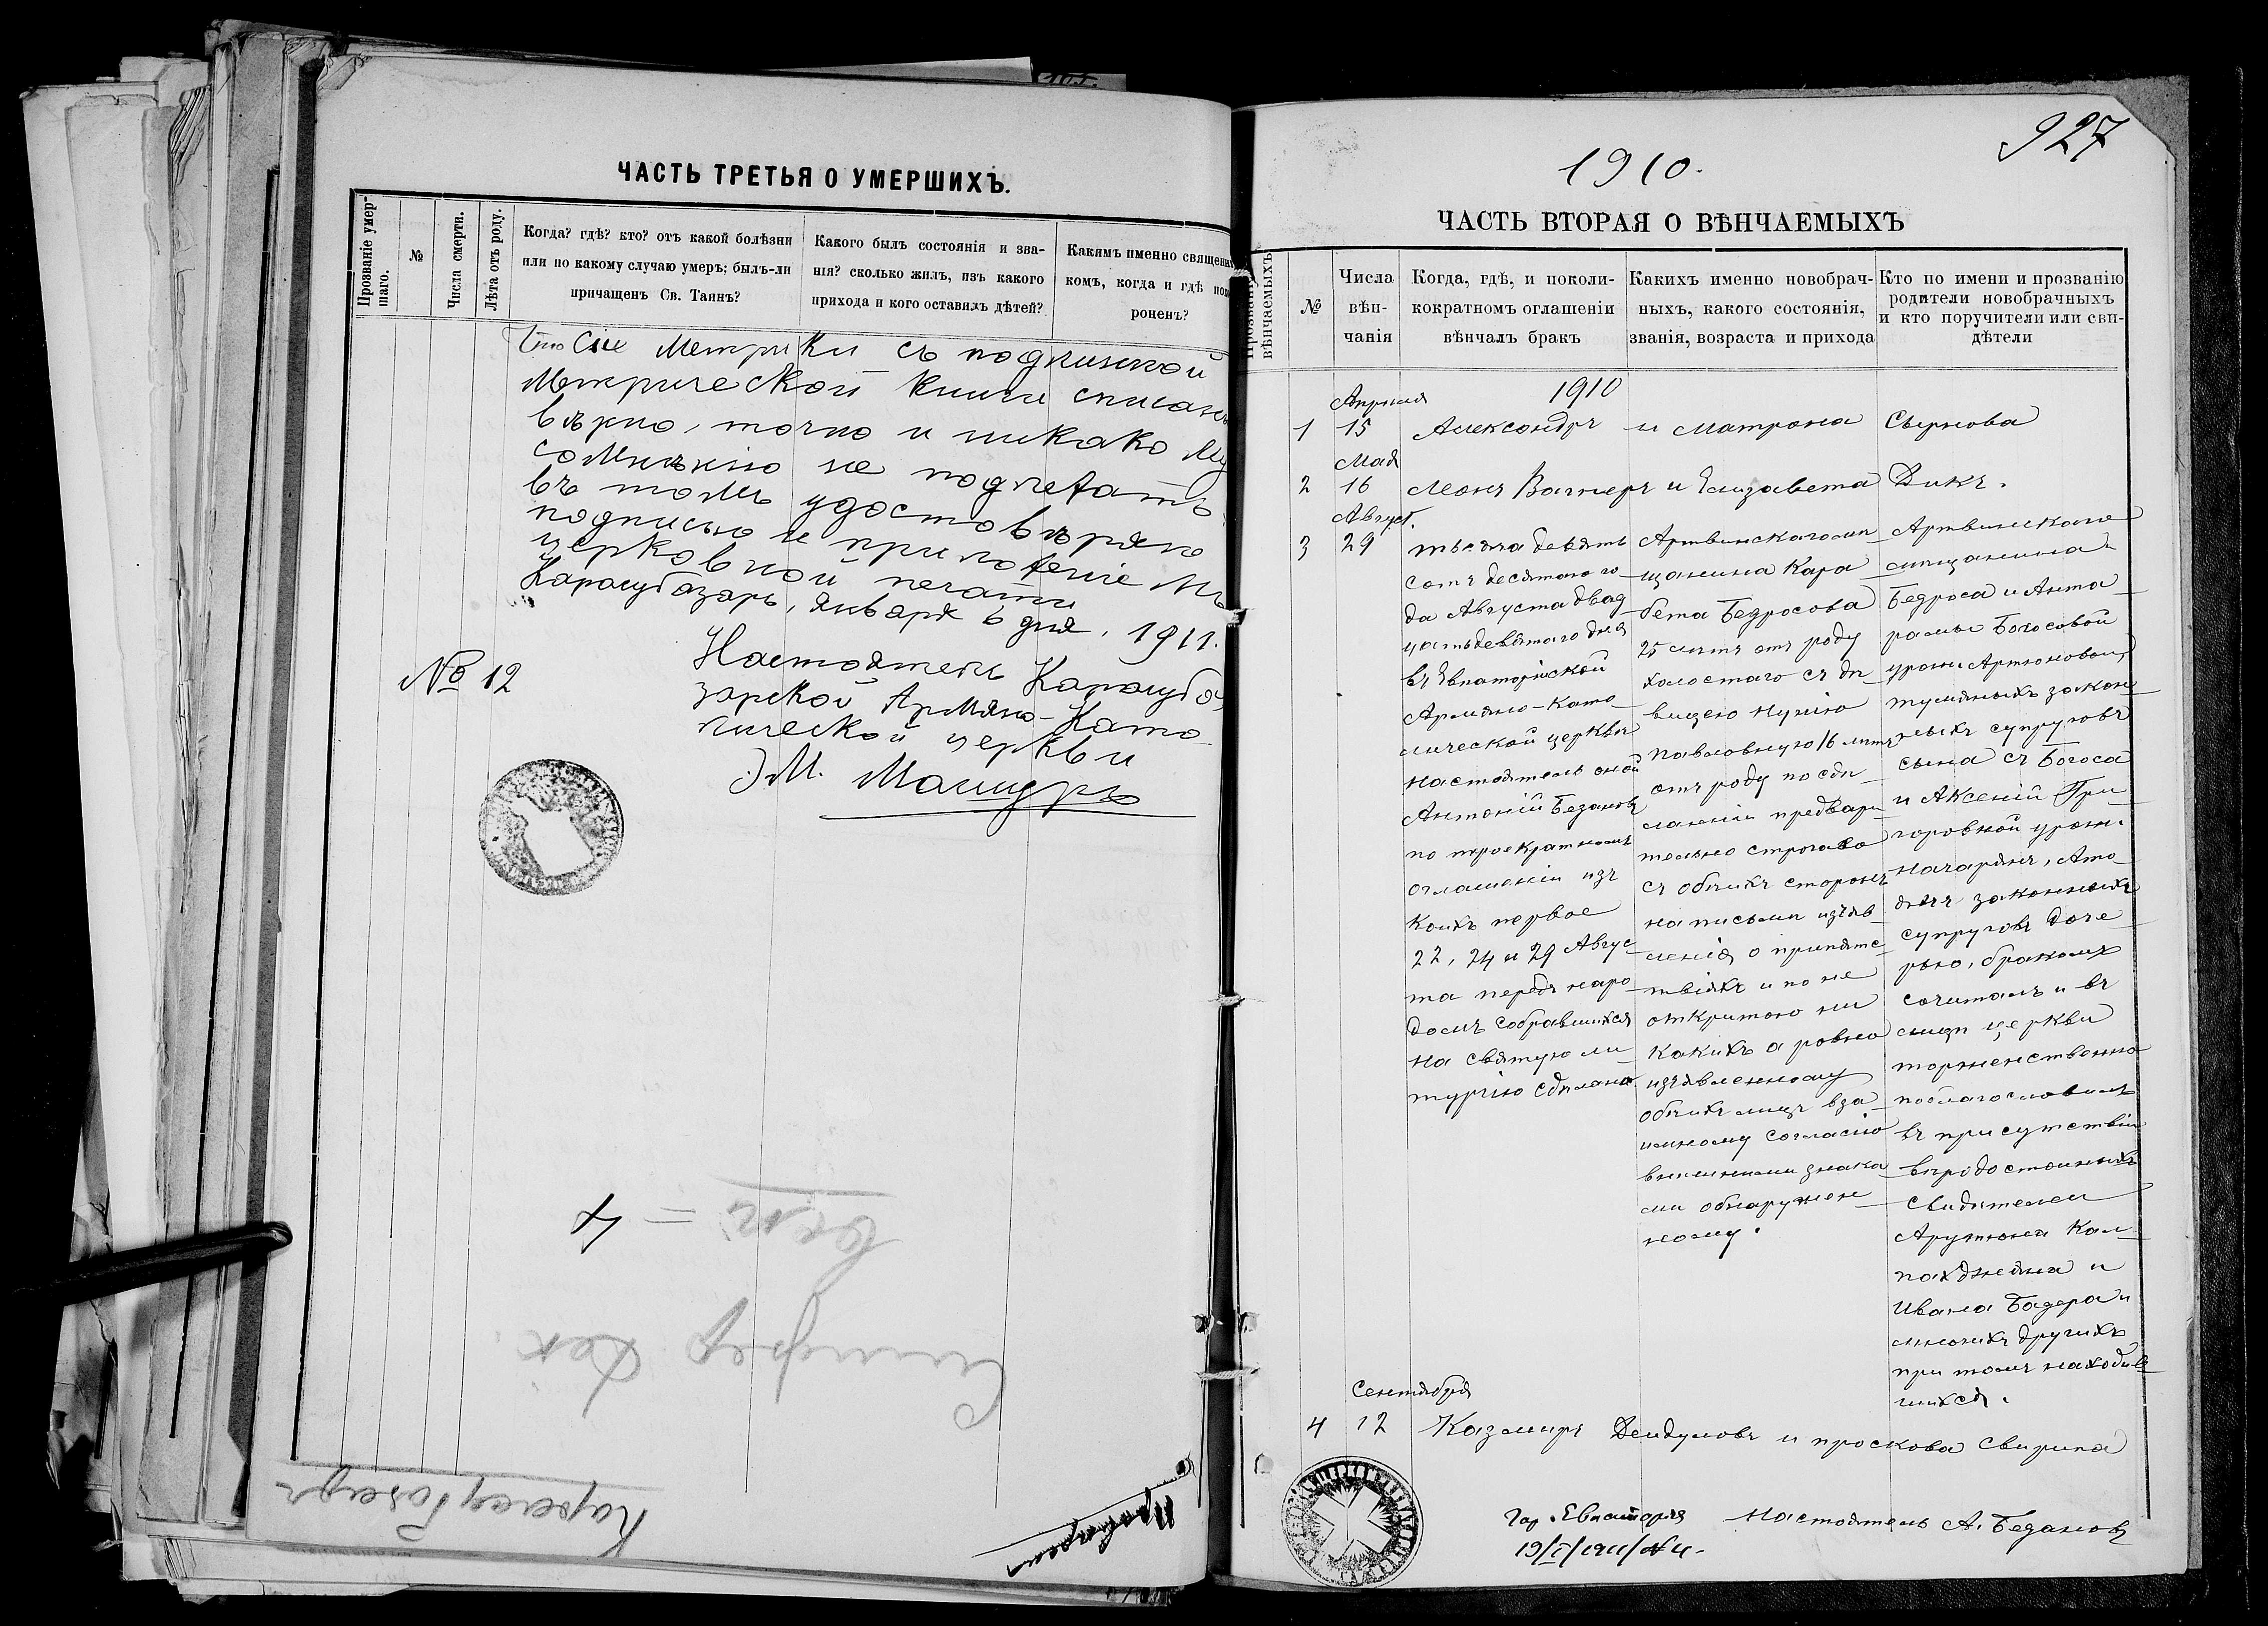 ЧАСТЬ ТРЕТЬЯ О УМЕРШИХЪ.
Прозваніе умер-
шаго.
№
Числа смерти.
Лѣта отъ роду.
Когда? гдѣ? кто? отъ какой болѣзни
или по какому случаю умеръ; былъ-ли
причащенъ Св. Таинъ?
Какого былъ состоянія и зва-
нія? сколько жилъ, изъ какого
прихода и кого оставилъ дѣтей?
Какимъ именно священни
комъ, когда и гдѣ пох
роненъ?
Что Сіе Метрики съ подлинной
Метрической Книги списаны
вѣрно, точно и никако му
сомнѣнію не подлежатъ
въ томъ удостовѣряю
подписью и приложеніе мъ
церковной печати
Карасубазаръ, Января 6 дня, 1911.
№ 12
Настоятель Карасуба
зарской Армяно-Като
лической церкви
Э М. Машуръ
вѣн. = 4
Симфер дек.
Карасубазаръ
927
1910.
ЧАСТЬ ВТОРАЯ О ВѢНЧАЕМЫХЪ
вѣнчаемыхъ
№
Числа
вѣн-
чанія
Когда, гдѣ, и поколи-
кократномъ оглашеніи
вѣнчалъ бракъ
Какихъ именно новобрач-
ныхъ, какого состоянія,
званія, возраста и прихода
Кто по имени и прозванію
родители новобрачныхъ
и кто поручители или сви-
дѣтели
1910
Апрѣля
1 15 Александръ и Матрона Сырнова
Мая
2 16 Леонъ Вагнеръ и Елизавета Дикъ.
Август.
3 29
тысяча девять
сотъ десятаго го
да Августа двад
цать девятаго дня
въ Евпаторійской
Армяно-Като
лической церкви
настоятель оной
Антоній Безановъ
по троекратномъ
оглашеніи изъ
коихъ первое
22, 24 и 29 Авгус
та передъ наро
домъ собравшихся
на святую ли
тургію сдѣлано
Артвинскаго мѣ
щанина Кара
бета Бедросова
25 лѣтъ отъ роду
холостаго съ дѣ
вицею Нунію
Павловную 16 лѣтъ
отъ роду по сдѣ
ланіи предвари
тельно строгаго
съ обѣихъ сторонъ
на письмѣ изъяв
ленія о припятс
твіяхъ и по не
открытою ни
какихъ а равно
изъявленному
обѣихъ лицъ вза
имному согласію
внѣшними знака
ми обнаружен
ному.
Артвинскаго
мѣщанина
Бедроса и Анта
рамы Богосовой
урожд Артюновой,
законн
ныхъ супруговъ
сына съ Богоса
и Аксеніи Гри
горовной урож.
законныхъ
супруговъ доче
рью, бракомъ
сочиталъ и въ
лицѣ церкви
торжественно
поблагословилъ
въ присутствіи
вѣродостоиныхъ
свидѣтелей
Арутюна Кал
пахджеяна и
Ивана Бадера и
многихъ другихъ
при томъ находив
шихся.
Сентября
4 12 Казмиръ Дендуловъ и Проскова Свирипа
Гор. Евпаторія Настоятель А. Безановъ
19/I/1911/№ 4.